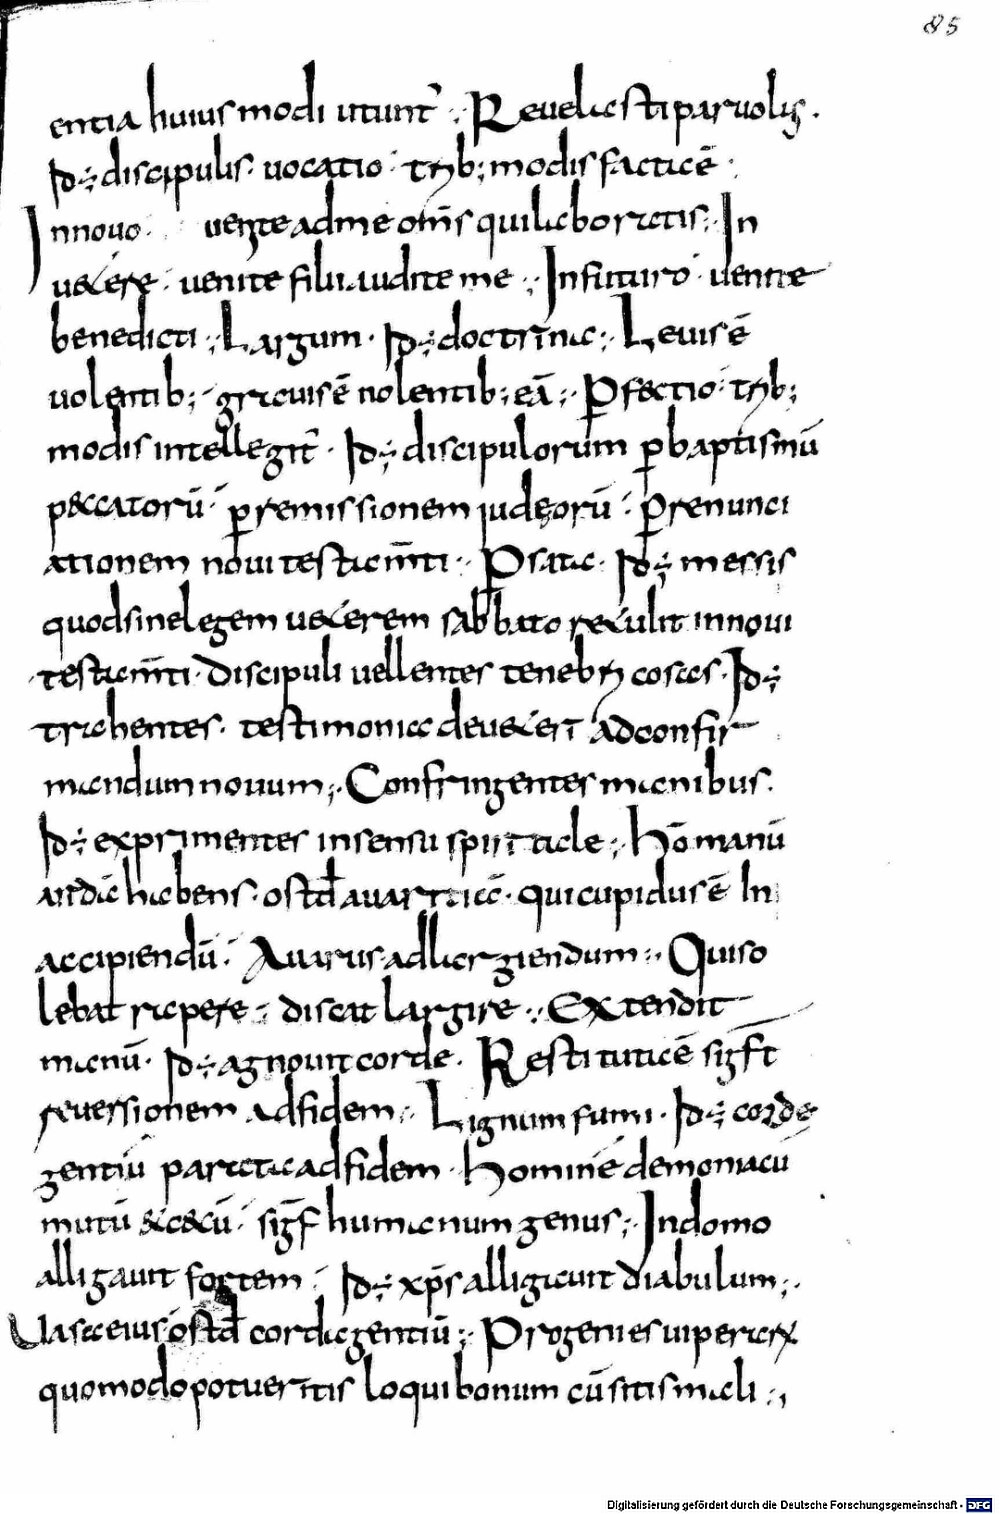 85
entia huiusmodi utunt̅ ·:· Reuelasti paruolis.
Id÷ discipulis. uocatio. trib; modis facta ē.
In nouo. uenite ad me om̅s qui laboratis ·:· In
uetere. uenite filii audite me ·:· In futuro. uenite
benedicti ·:· Largum. Id÷ doctrina ·:· Leuis ē
uolentib; grauis ē nolentib; eā ·:· Pfectio. trib;
modis intellegit̅. Id÷ discipulorum p baptismū
peccatorū. p remissionem iudeorū. prenunci
ationem noui testam̅ti ·:· Psata. Id÷ messis
quod sine legem ueterem sabbato retulit in noui
testam̅ti. Discipuli uellentes tenebricosas. Id÷
trahentes. testimonia de ueteri ad confir
mandum nouum ·:· Confringentes manibus.
Id÷ exprimentes in sensu spiritale ·:· Hōmanū
aridā habens. ostd̅ auaritiā. qui cupidus ē In
accipiendū. Auarus ad largiendum ·:· Qui so
lebat rapere. discat largire ·:· Extendit
manū. Id÷ agnouit corde. Restituta ē sigft̅
reuersionem ad fidem ·:· Lignum fumi. Id÷ corde
gentiū parata ad fidem. Hominē demoniacū
mutū & cecū. sigf̅ humanum genus ·:· In domo
alligauit fortem. Id÷ xp̅s alligauit diabulum ·:·
Uasa eius ostd̅ corda gentiū ·:· Progenies uiperarū
quomodo potueritis loqui bonum cū sitis mali ·:·
Digitalisierung gefördert durch die Deutsche Forschungsgemeinschaft - DFG